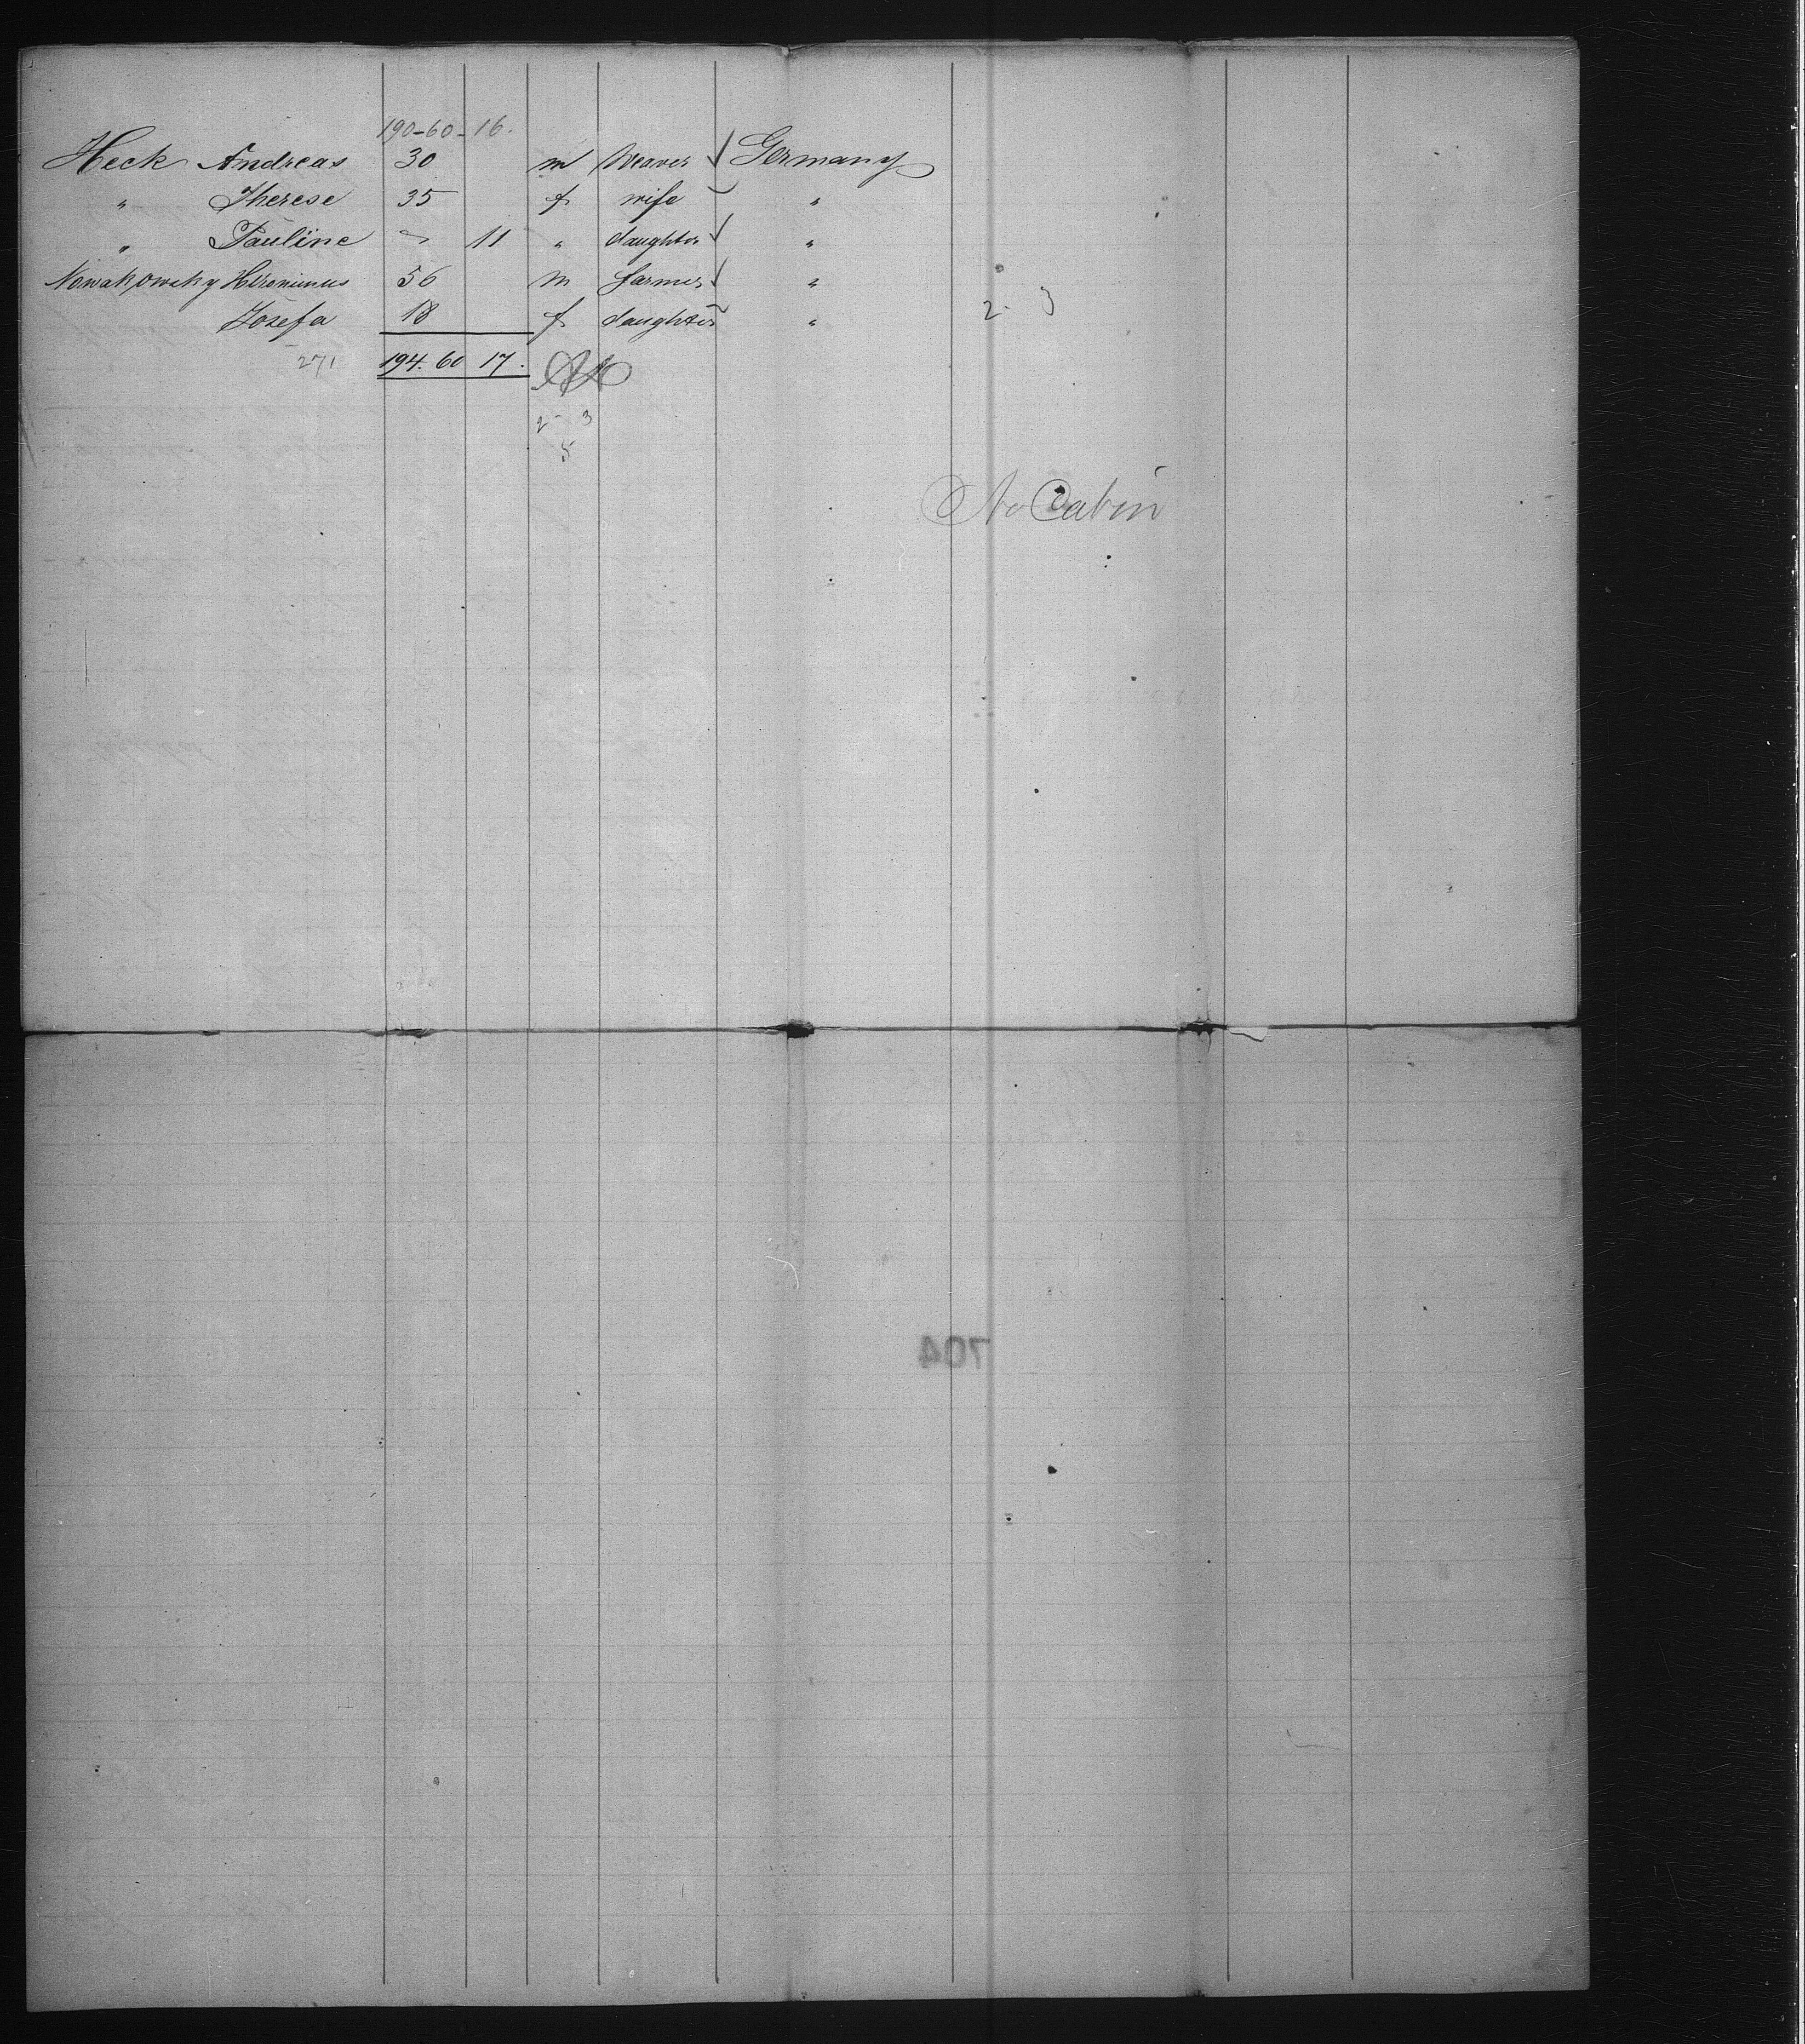 190-60-16.
Heck Andreas 30 m Weaver Germany
" Therese 35 f wife "
" Pauline 11 " daughter "
Nowakowsky Hironimus 56 m farmer "
Josefa 18 f daughter "
2- 3
271 194. 60 17.
2- 3
5
No Cabin
704